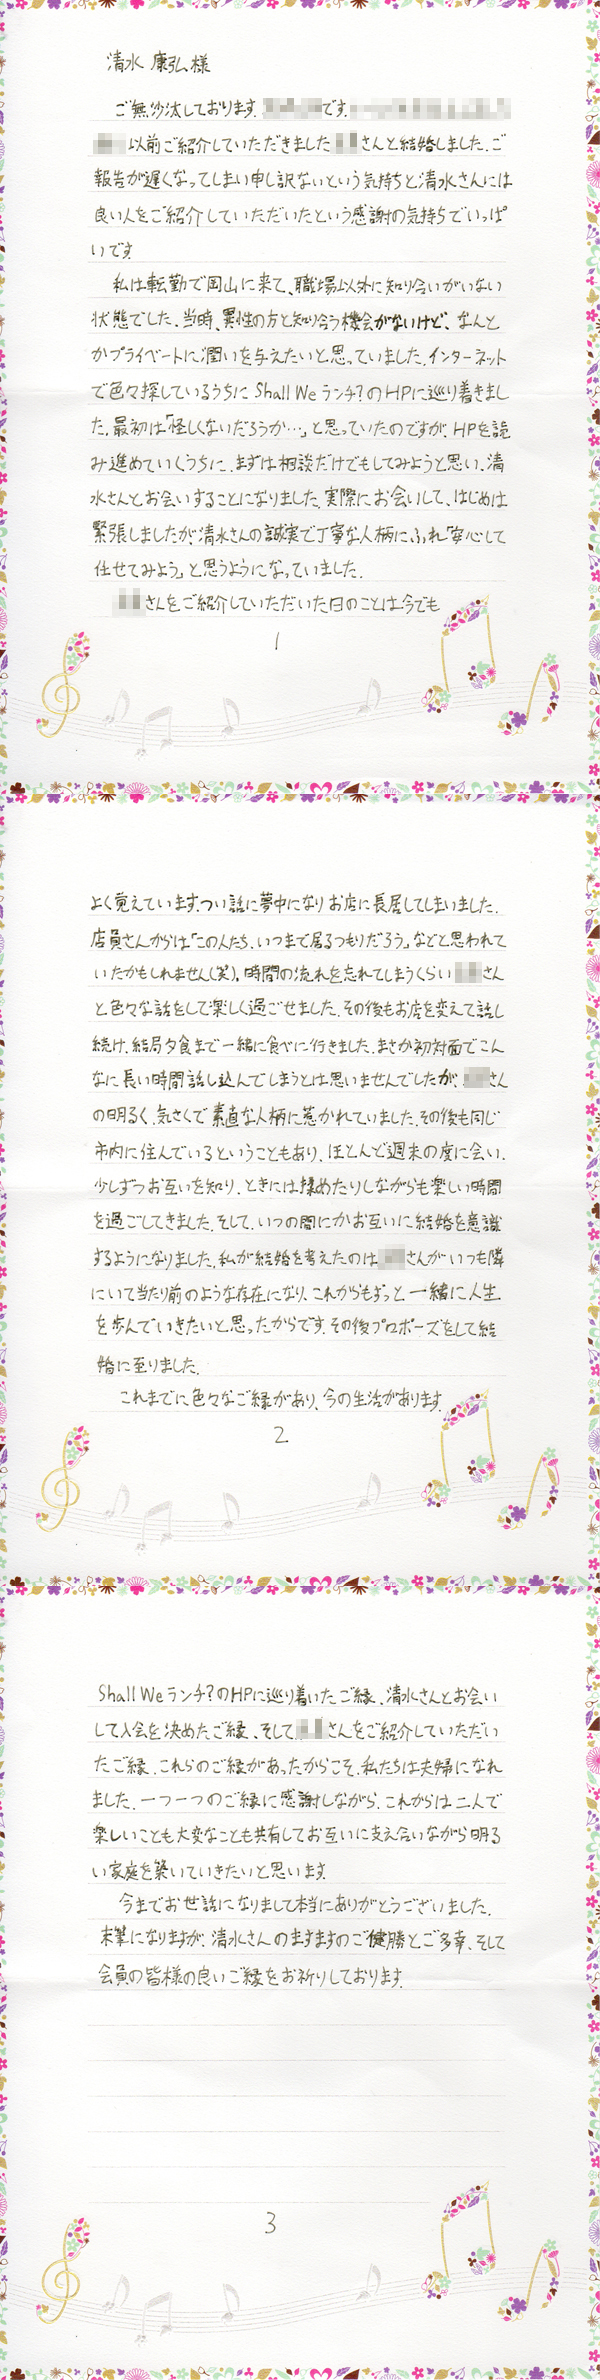 清水 康弘 様
ご無沙汰しております。です。
以前ご紹介していただきましたさんと結婚しました。ご
報告が遅くなってしまい申し訳ないという気持ちと清水さんには
良い人をご紹介していただいたという感謝の気持ちでいっぱ
いです。
私は転勤で岡山に来て、職場以外に知り合いがいない
状態でした。当時、異性の方と知り合う機会がないけど、なんと
かプライベートに潤いを与えたいと思っていました。インターネット
で色々探しているうちにShall We ランチ?のHPに巡り着きまし
た。最初は「怪しくないだろうか…」と思っていたのですが、HPを読
み進めていくうちに、まずは相談だけでもしてみようと思い、清
水さんとお会いすることになりました。実際にお会いして、はじめは
緊張しましたが、清水さんの誠実で丁寧な人柄にふれ「安心して
任せてみよう」と思うようになっていました。
さんをご紹介していただいた日のことは今でも
1
よく覚えています。つい話に夢中になりお店に長居してしまいました。
店員さんからは「この人たち、いつまで居るつもりだろう」などと思われて
いたかもしれません(笑)。時間の流れを忘れてしまうくらいさん
と色々な話をして楽しく過ごせました。その後もお店を変えて話し
続け、結局夕食まで一緒に食べに行きました。まさか初対面でこん
なに長い時間話し込んでしまうとは思いませんでしたが、さん
の明るく、気さくで素直な人柄に惹かれていました。その後も同じ
市内に住んでいるということもあり、ほとんど週末の度に会い、
少しずつお互いを知り、ときには揉めたりしながらも楽しい時間
を過ごしてきました。そして、いつの間にかお互いに結婚を意識
するようになりました。私が結婚を考えたのはさんがいつも隣
にいて当たり前のような存在になり、これからもずっと一緒に人生
を歩んでいきたいと思ったからです。その後プロポーズをして結
婚に至りました。
これまでに色々なご縁があり、今の生活があります。
2
Shall We ランチ?のHPに巡り着いたご縁、清水さんとお会い
して入会を決めたご縁、そしてさんをご紹介していただい
たご縁、これらのご縁があったからこそ、私たちは夫婦になれ
ました。一つ一つのご縁に感謝しながら、これからは二人で
楽しいことも大変なことも共有してお互いに支え合いながら明る
い家庭を築いていきたいと思います。
今までお世話になりまして本当にありがとうございました。
末筆になりますが、清水さんのますますのご健勝とご多幸、そして
会員の皆様の良いご縁をお祈りしております。
3